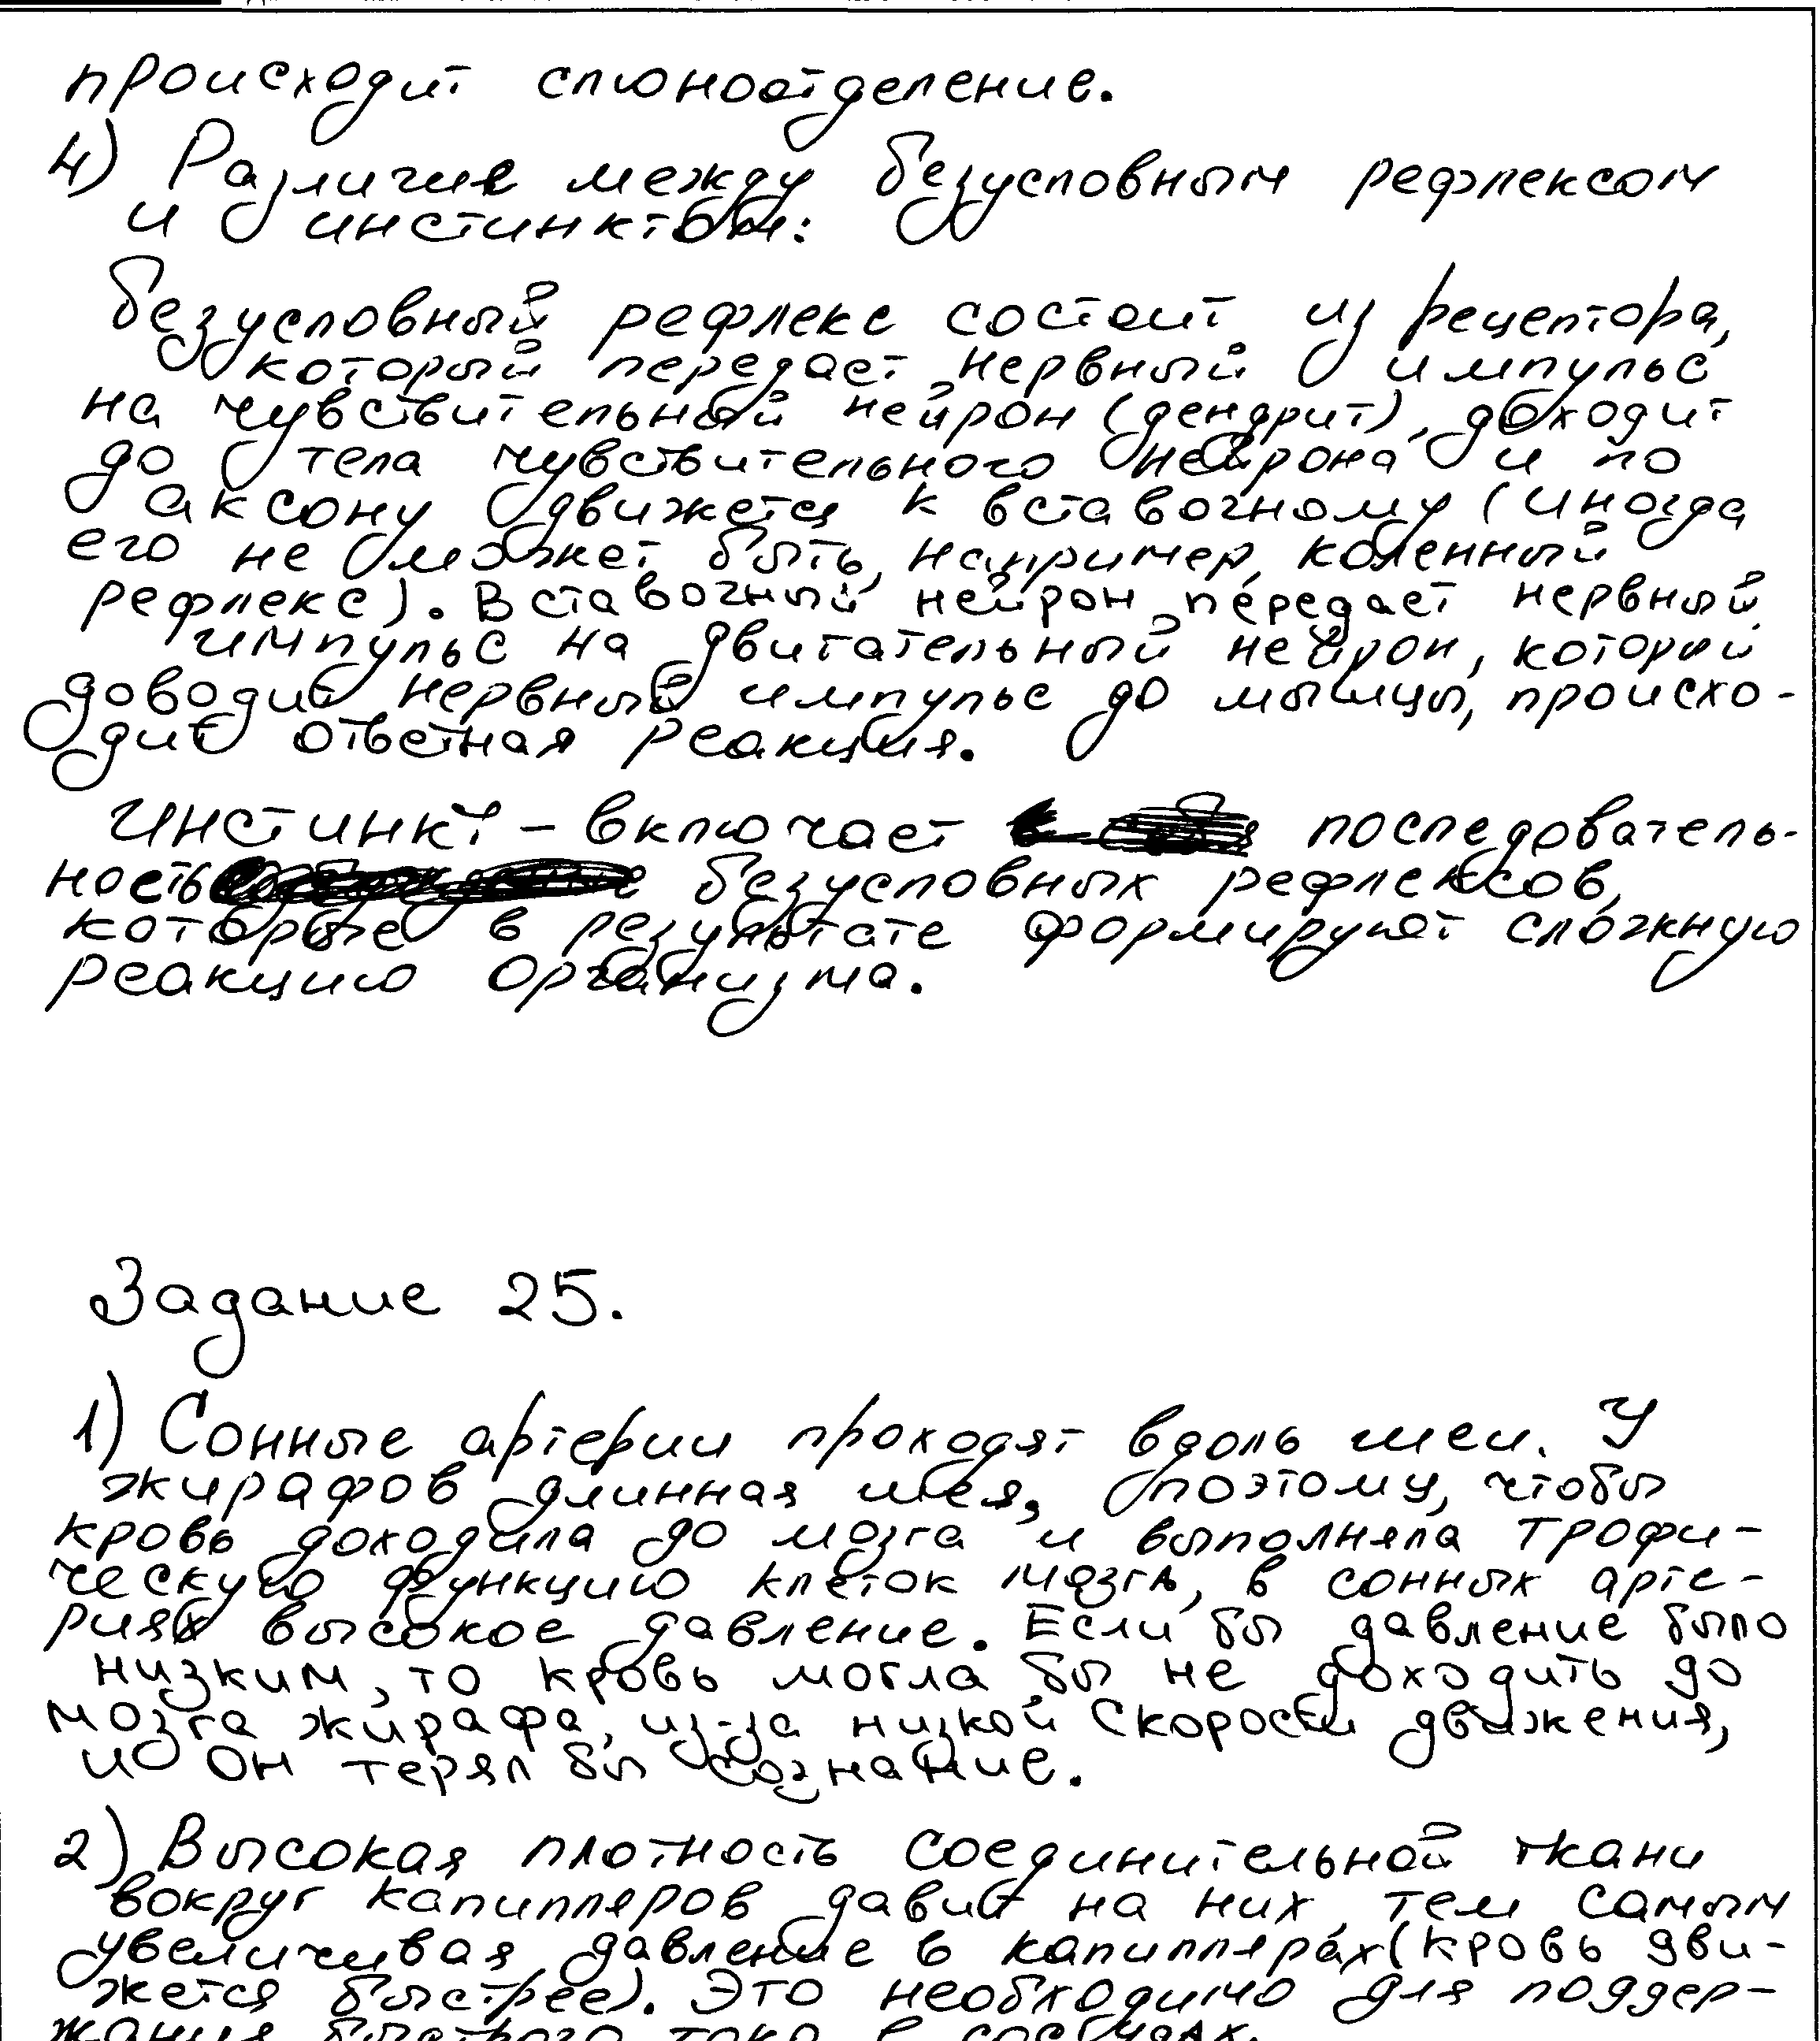 происходит слюноотделение.
4) Различия между безусловным рефлексом
и инстинктом:
Безусловный рефлекс состоит из рецептора,
который передает нервный импульс
на чувствительный нейрон (дендрит), доходит
до тела чувствительного нейрона и по
аксону движется к вставочному (иногда
его не может быть, например, коленный
рефлекс). Вставочный нейрон передает нервный
импульс на двигательный нейрон, который
доводит нервный импульс до мышцы, происхо-
дит ответная реакция.
Инстинкт - включает последователь-
ность безусловных рефлексов,
которые в результате формируют сложную
реакцию организма.
Задание 25.
1) Сонные артерии проходят вдоль шеи. У
жирафов длинная шея, поэтому, чтобы
кровь доходила до мозга и выполняла трофи-
ческую функцию клеток мозга, в сонных арте-
риях высокое давление. Если бы давление было
низким, то кровь могла бы не доходить до
мозга жирафа, из-за низкой скорости движения,
и он терял бы сознание.
2) Высокая плотность соединительной ткани
вокруг капилляров давит на них, тем самым
увеличивая давление в капиллярах (кровь дви-
жется быстрее). Это необходимо для поддер-
жания быстрого тока в сосудах.